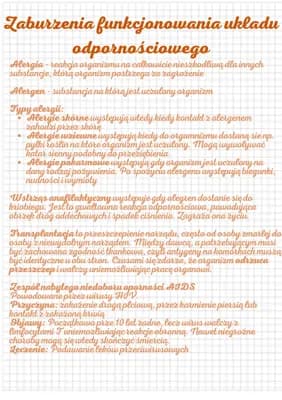 Zaburzenia funkcjonowania układu
odpornościowego
Alergia - reakcja organizmu na całkowicie nieszkodliwą dla innych
substancje, którą organizm postrzega za zagrożenie
Alergen - substancja na którą jest uczulony organizm
Typy alergii:
• Alergie skórne występują wtedy kiedy kontakt z alergenem
zachodzi przez skórę
• Alergie wziewne występują kiedy do organizmu dostaną się np.
pyłki roślin na które organizm jest uczulony. Mogą wywoływać
katar sienny podobny do przeziębienia
• Alergie pokarmowe występują gdy organizm jest uczulony na
dany rodzaj pożywienia. Po spożyciu alergenu występują biegunki,
nudności i wymioty
Wstrząs anafilaktyczny występuje gdy alergen dostanie się do
krwiobiegu. Jest to gwałtowna reakcja odpornościowa, powodująca
obrzęk dróg oddechowych i spadek ciśnienia. Zagraża ona życiu.
Transplantacja to przeszczepienie narządu, często od osoby zmarłej do
osoby z niewydolnym narządem. Między dawcą, a potrzebującym musi
być zachowana zgodność tkankowa, czyli antygeny na komórkach muszą
być identyczne u obu stron. Czasami się zdarza, że organizm odrzuca
przeszczep i walczy uniemożliwiając pracę organowi.
Zespół nabytego niedoboru oporności AIDS
Powodowane przez wirusy HIV.
Przyczyna: zakażenie drogą płciową, przez karmienie piersią lub
kontakt z zakażoną krwią
Objawy: Początkowo prze 10 lat żadne, lecz wirus walczy z
limfocytami T uniemożliwiając reakcję obronną. Nawet niegroźne
choroby mogą się wtedy skończyć śmiercią.
Leczenie: Podawanie leków przeciwwirusowych